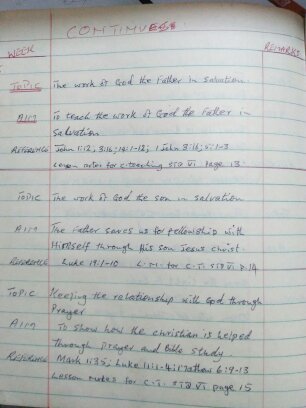 CONTINUES
WEEK
REMARKS
TOPIC The work of God the Father in salvation.
AIM To teach the work of God the Father in
salvation
REFERENCE John 1:12, 3:16; 14:1-12; 1 John 3:16; 5:1-3
for c. teaching STD VI page 13
TOPIC The work of God the son in salvation
AIM The Father saves us for fellowship with
Himself through his son Jesus christ.
REFERENCE Luke 19:1-10 L.N. for C.T. STD VI P. 14
TOPIC Keeping the relationship with God through
Prayer
AIM To show how the christian is helped
through prayer and Bible study.
REFERENCE Mark 1:35; Luke 11:1-4; Mathew 6:9-13
Lesson notes for C.T. STD VI page 15